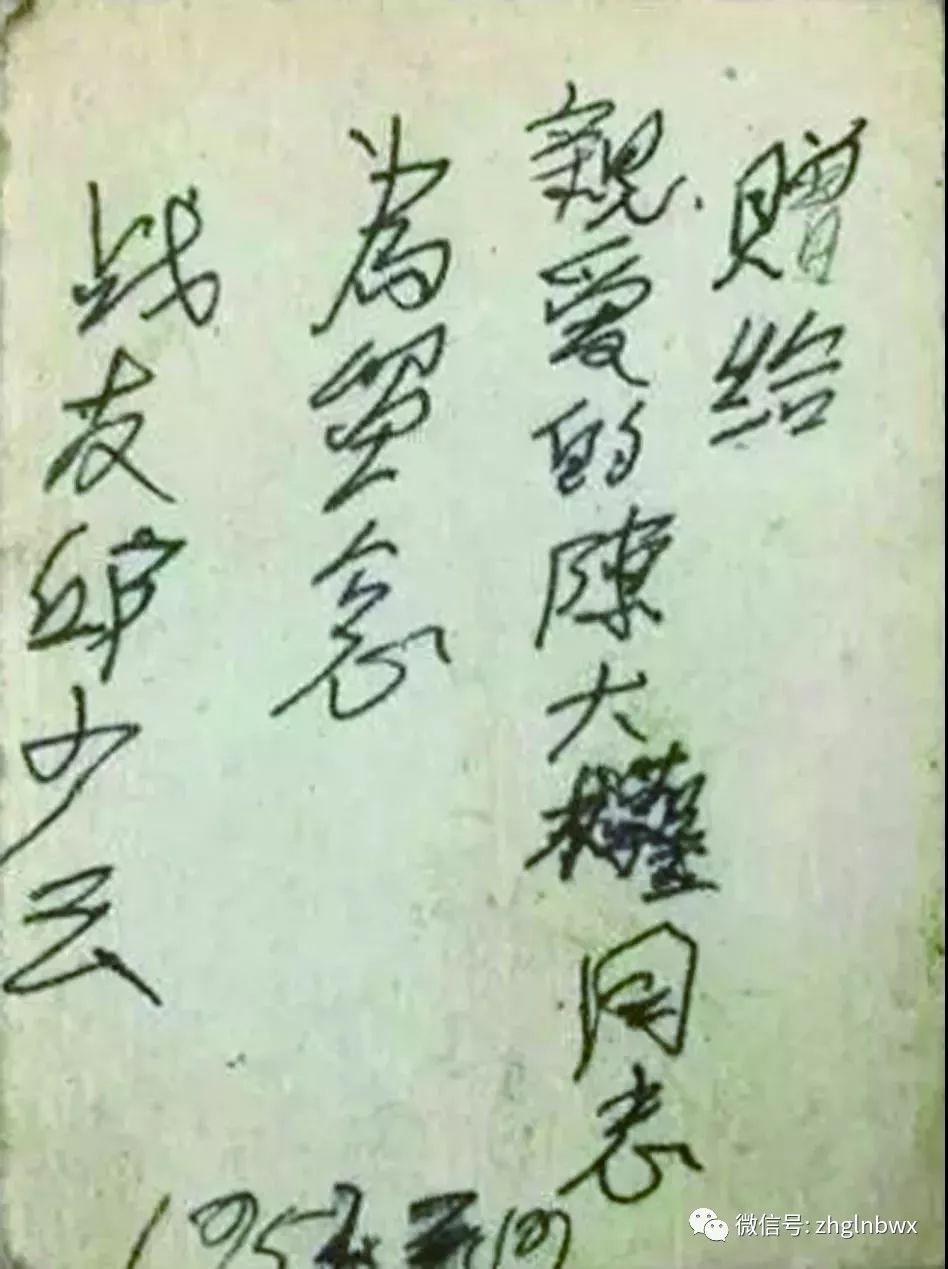 贈给
親爱的陳大權同志
为留念
战友邱少云
195
微信号: zhglnbwx